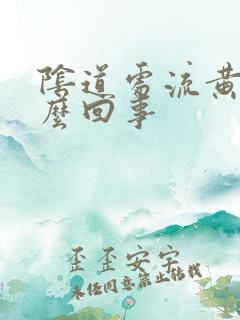 陰道需流黄
麼回事
歪歪安宇
未经同意禁止转载